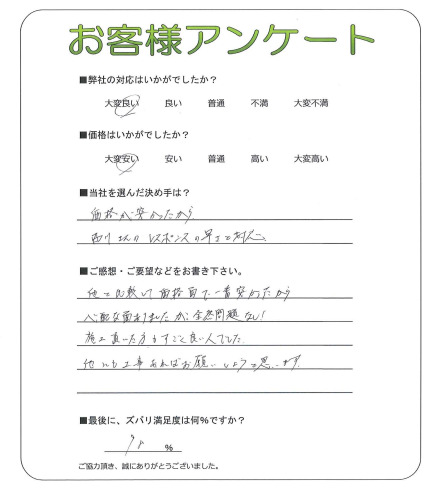 お客様アンケート
■弊社の対応はいかがでしたか?
大変良い 良い 普通 不満 大変不満
■価格はいかがでしたか?
大変安い 安い 普通 高い 大変高い
■当社を選んだ決め手は?
価格が安かったから
西川さんのレスポンスの早さと対応
■ご感想・ご要望などをお書き下さい。
他と比較して価格面で一番安かったから
心配な面ありましたが、全然問題なし!
施工頂いた方もすごく良い人でした
他にも工事あればお願いしようと思います
■最後に、ズバリ満足度は何%ですか?
%
ご協力頂き、誠にありがとうございました。